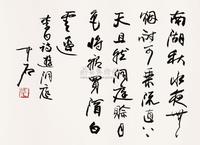 南湖秋水夜无
烟耐可乘流直上
天且就洞庭赊月
色将船买酒白
云边
李白诗游洞庭